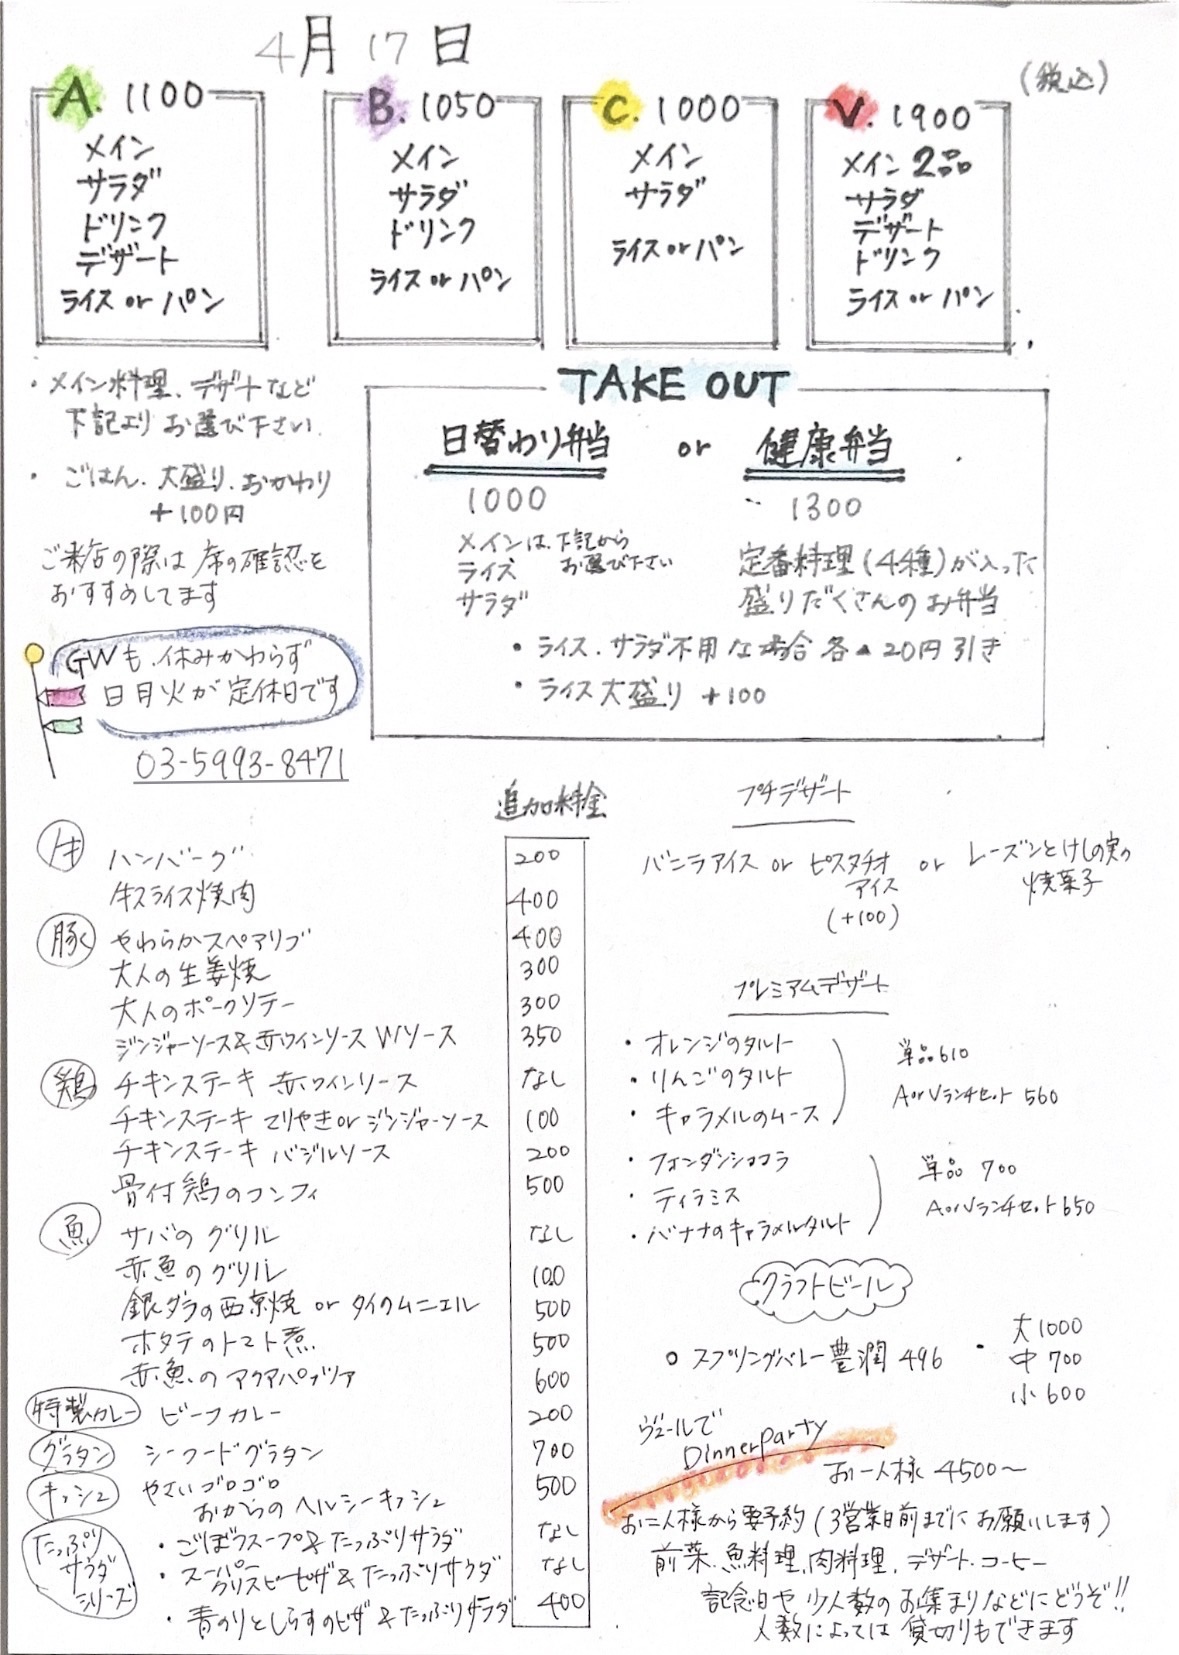 4月17日
(税込)
A. 1100
メイン
サラダ
ドリンク
デザート
ライス or パン
B. 1050
メイン
サラダ
ドリンク
ライス or パン
C. 1000
メイン
サラダ
ライス or パン
V. 1900
メイン 2品
サラダ
デザート
ドリンク
ライス or パン
・メイン料理、デザートなど
下記より お選び下さい
・ごはん、大盛り、おかわり
+100円
ご来店の際は 席の確認を
おすすめしてます
GWも、休みかわらず
日月火が定休日です
03-5993-8471
TAKE OUT
日替わり弁当 or 健康弁当
1000
メインは、下記から
お選び下さい
ライス
サラダ
1300
定番料理(4種)が入った
盛りだくさんのお弁当
・ライス、サラダ不用な場合 各▲20円引き
・ライス大盛り +100
追加料金
牛 ハンバーグ 200
牛スライス焼肉 400
豚 やわらかスペアリブ 400
大人の生姜焼 300
大人のポークソテー 300
ジンジャーソース&赤ワインソース Wソース 350
鶏 チキンステーキ 赤ワインソース なし
チキンステーキ てりやき or ジンジャーソース 100
チキンステーキ バジルソース 200
骨付鶏のコンフィ 500
魚 サバのグリル なし
赤魚のグリル 100
銀ダラの西京焼 or タイのムニエル 500
ホタテのトマト煮 500
赤魚のアクアパッツァ 600
特製カレー ビーフカレー 200
グラタン シーフードグラタン 700
キッシュ やさいゴロゴロ
おからのヘルシーキッシュ 500
たっぷり
サラダ
シリーズ
・ごぼうスープ&たっぷりサラダ なし
・スーパー
クリスピーピザ&たっぷりサラダ なし
・青のりとしらすのピザ&たっぷりサラダ 400
プチデザート
バニラアイス or ピスタチオ
アイス
(+100)
or レーズンとけしの実の
焼菓子
プレミアムデザート
・オレンジのタルト
・りんごのタルト
・キャラメルのムース
単品610
AorVランチセット 560
・フォンダンショコラ
・ティラミス
・バナナのキャラメルタルト
単品 700
AorVランチセット650
クラフトビール
○ スプリングバレー豊潤 496
・大1000
中 700
小 600
ヴェールで
Dinnerparty
お一人様 4500〜
お二人様から要予約(3営業日前までにお願いします)
前菜、魚料理、肉料理、デザート、コーヒー
記念日や少人数のお集まりなどにどうぞ!!
人数によっては貸切りもできます